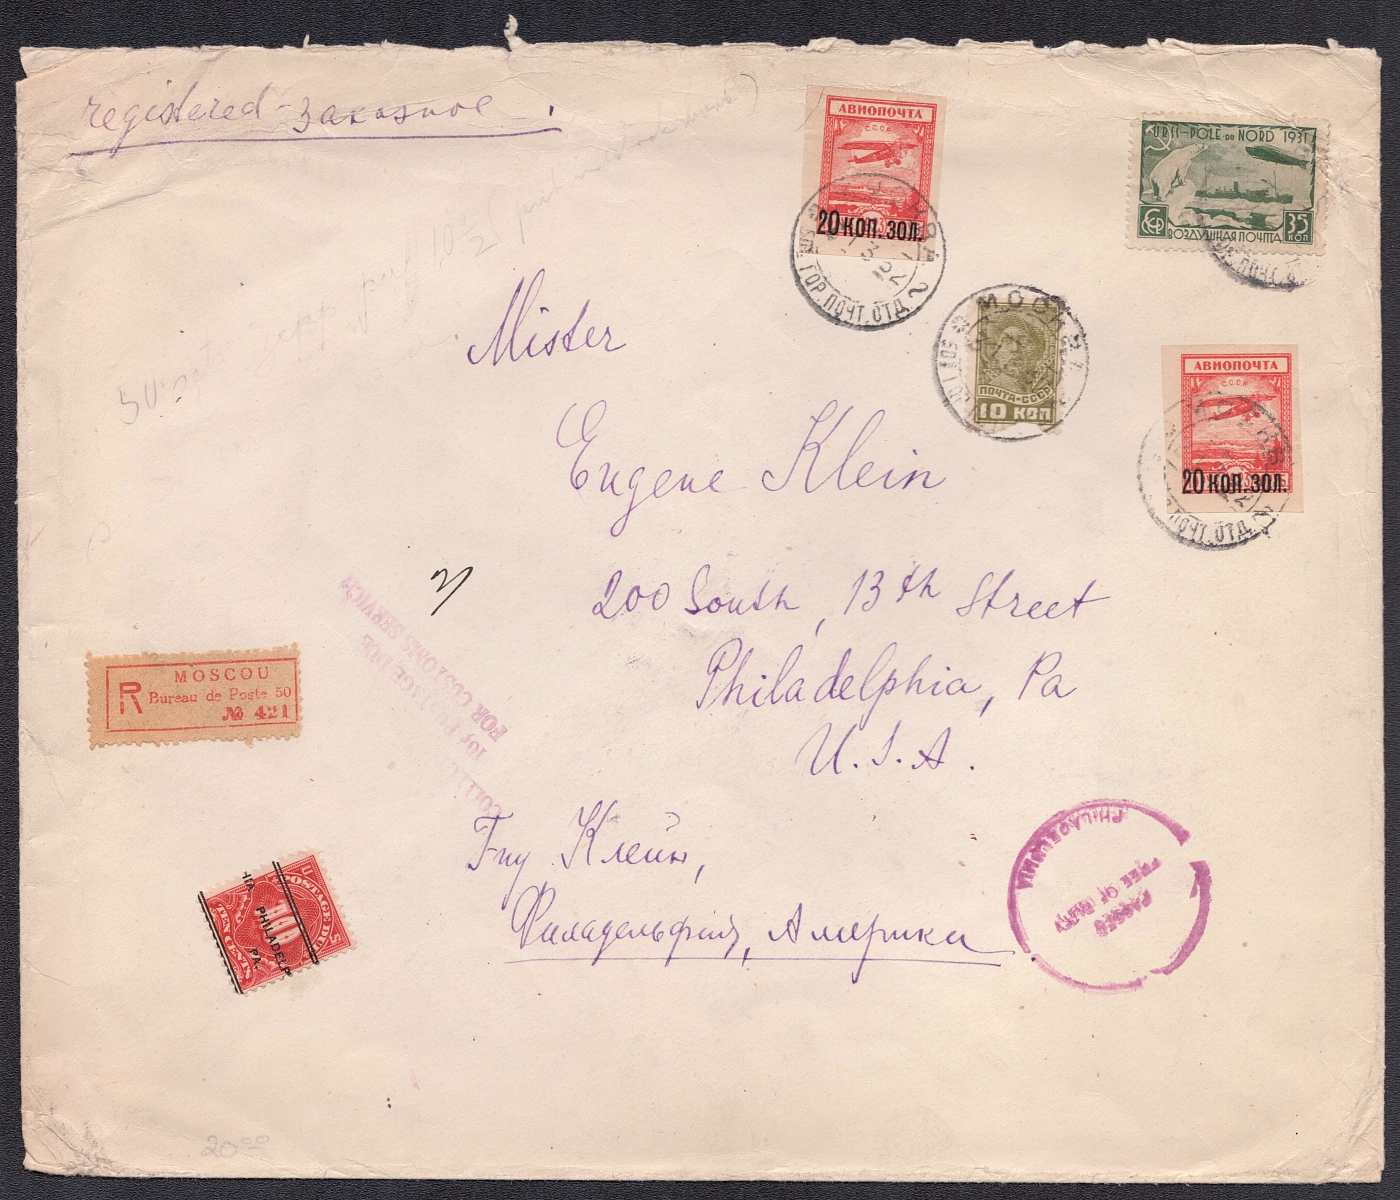 registered - заказное.
АВИОПОЧТА
С.С.С.Р.
20 КОП. ЗОЛ.
ГОР. ПОЧТ. ОТД. 2
URSS-POLE DU NORD 1931
СССР
35
КОП
ВОЗДУШНАЯ ПОЧТА
МОСКВА
ПОЧТА-СССР
10 КОП
АВИОПОЧТА
С.С.С.Р.
20 КОП. ЗОЛ.
ПОЧТ. ОТД. 2
50
10½
Mister
Eugene Klein
200 South, 13th Street
Philadelphia, Pa
U.S.A.
Г-ну Клейн,
Филадельфия, Америка
MOSCOU
R Bureau de Poste 50
№ 421
10¢ POSTAGE DUE
FOR CUSTOMS SERVICE
POSTAGE DUE
10
TEN CENTS
PHILADELPHIA
PA.
PHILADELPHIA
PASSED
FREE OF DUTY
20.00